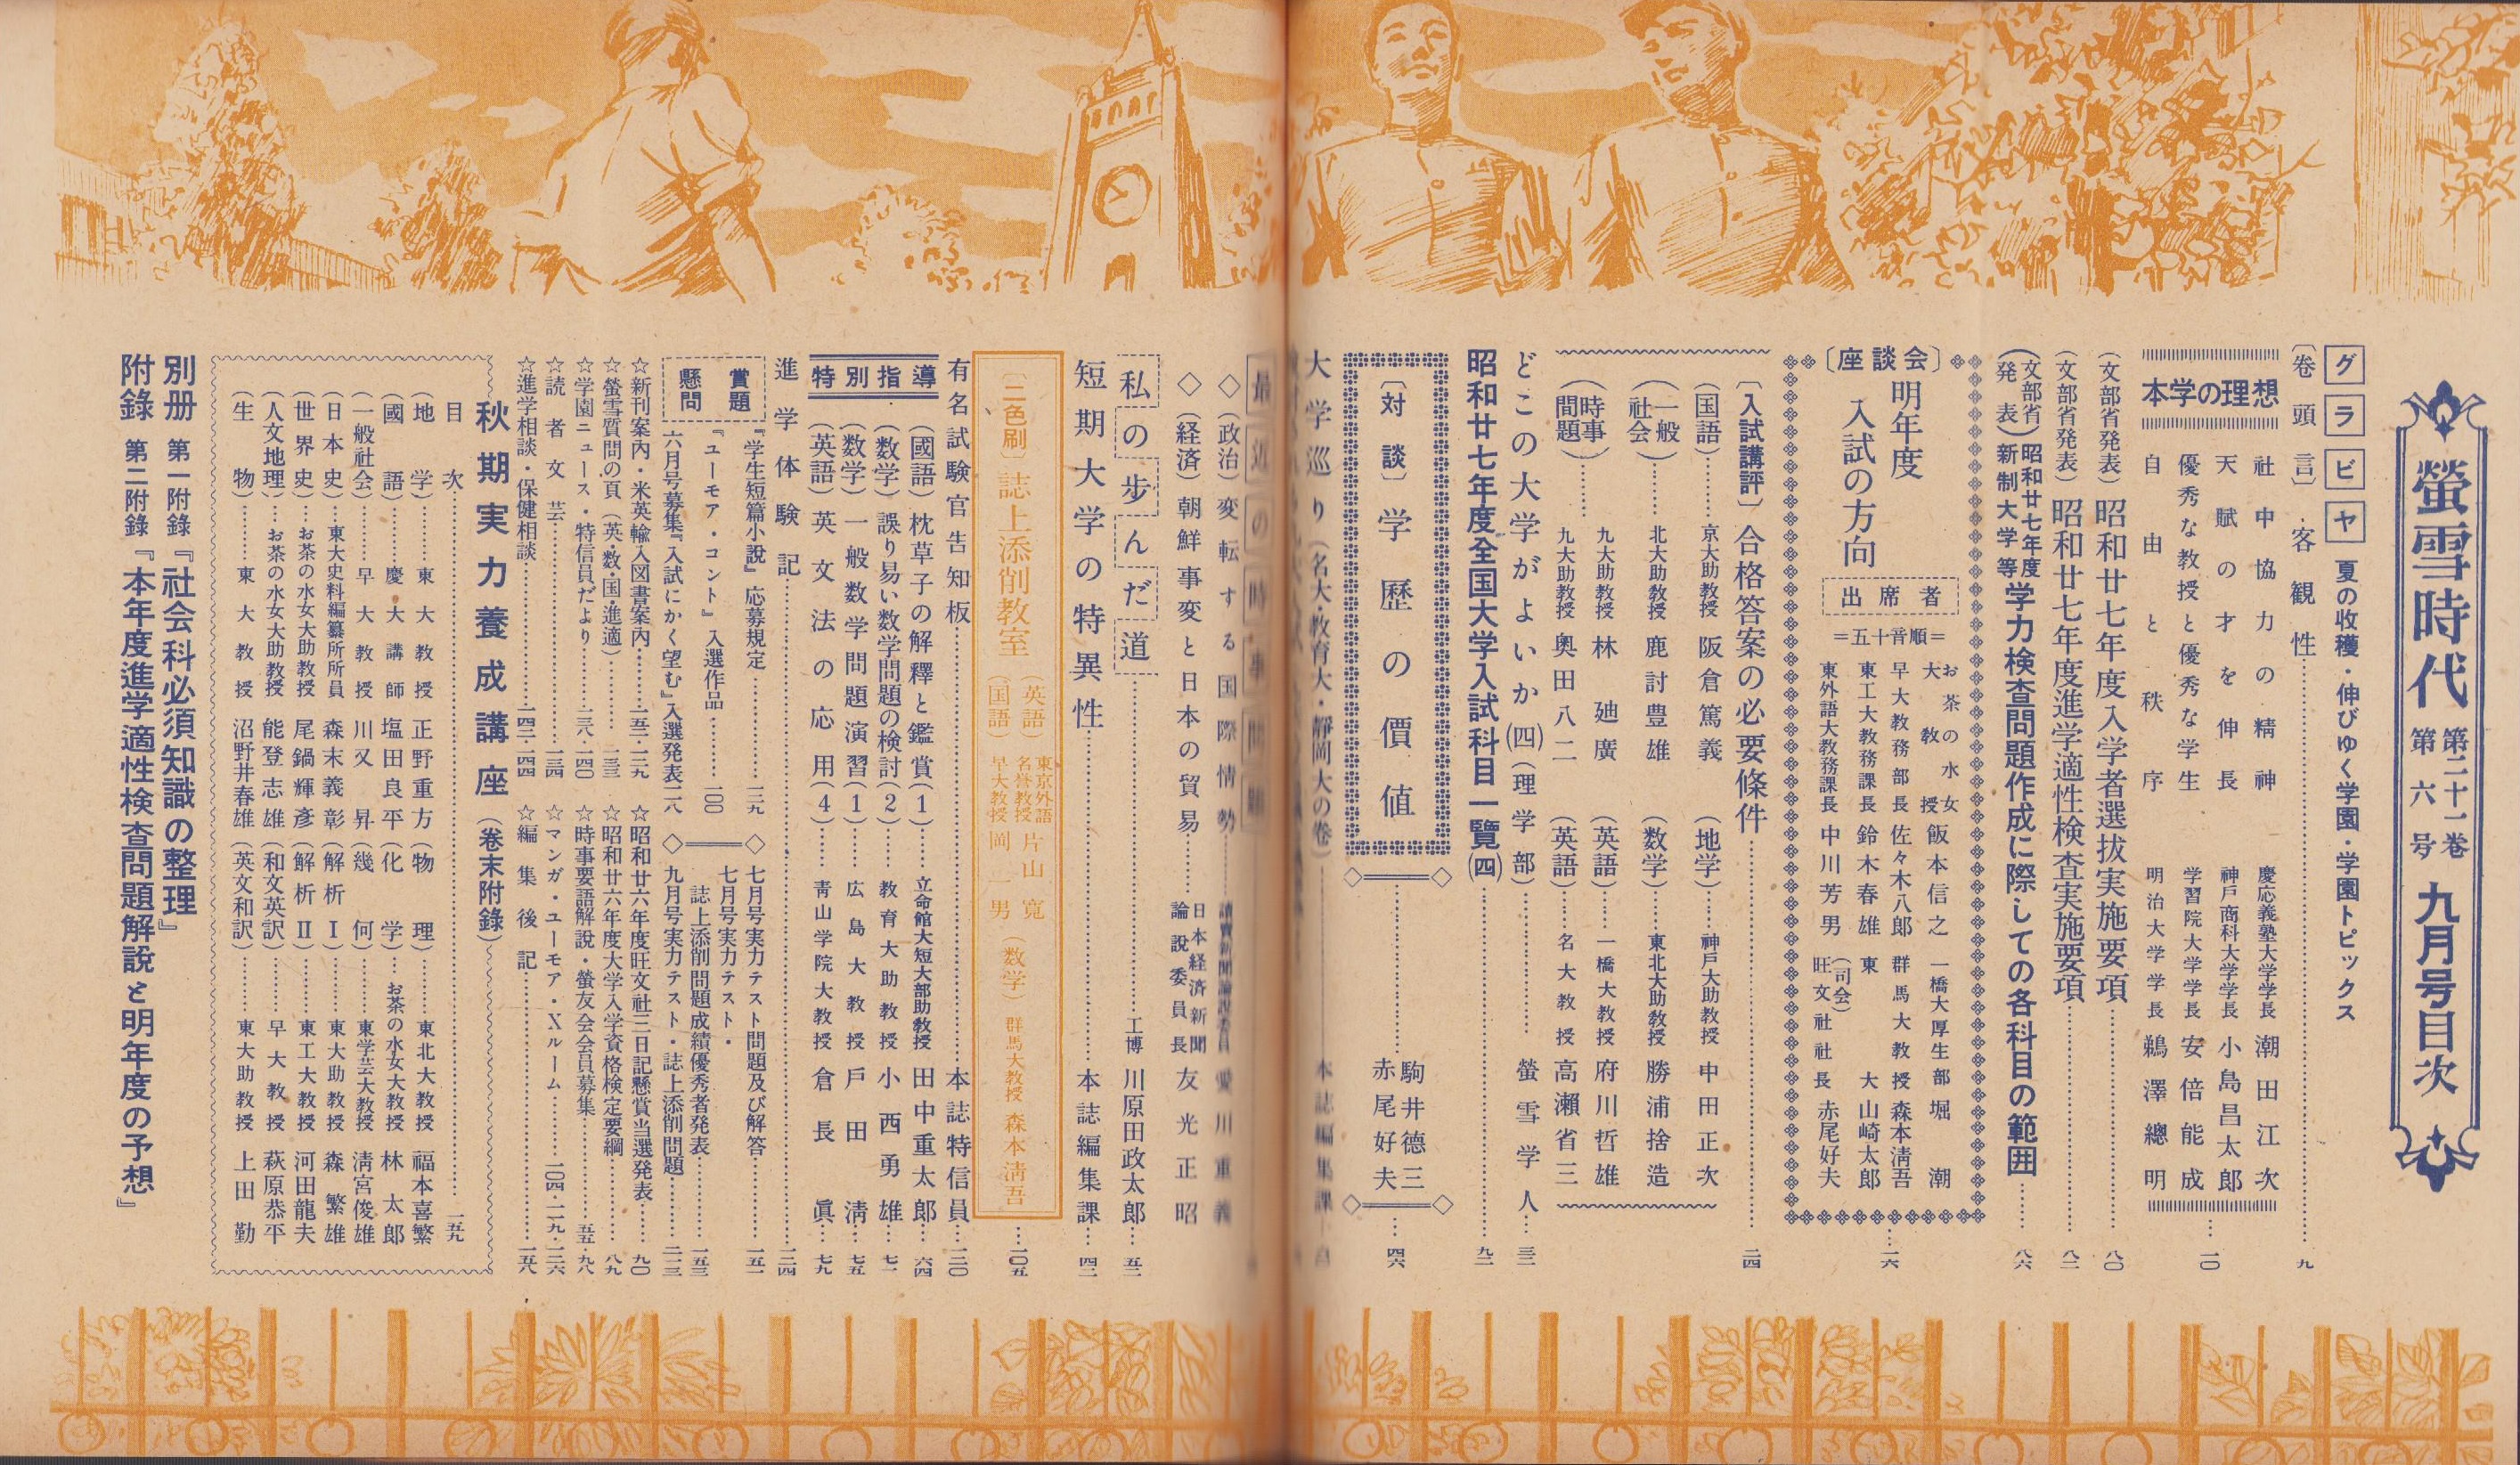 螢雪時代 第二十一巻 第六号 九月号目次
グラビヤ 夏の收穫・伸びゆく学園・学園トピックス
〔卷頭言〕客観性……九
本学の理想
社中協力の精神 慶応義塾大学学長 潮田江次
天賦の才を伸長 神戸商科大学学長 小島昌太郎
優秀な教授と優秀な学生 学習院大学学長 安倍能成
自由と秩序 明治大学学長 鵜澤總明
……一〇
(文部省発表)昭和廿七年度入学者選抜実施要項……八〇
(文部省発表)昭和廿七年度進学適性検査実施要項……八二
(文部省発表)昭和廿七年度新制大学等学力検査問題作成に際しての各科目の範囲……八六
〔座談会〕明年度入試の方向
出席者
=五十音順=
お茶の水女大教授 飯本信之 一橋大厚生部 堀潮
早大教務部長 佐々木八郎 群馬大教授 森本清吾
東工大教務課長 鈴木春雄 東大 山崎太郎
東外語大教務課長 中川芳男 (司会)旺文社社長 赤尾好夫
……一六
〔入試講評〕合格答案の必要條件……二四
(国語)……京大助教授 阪倉篤義 (地学)……神戸大助教授 中田正次
(一般社会)……北大助教授 鹿討豊雄 (数学)……東北大助教授 勝浦捨造
(時事問題)……九大助教授 林廸廣 (英語)……一橋大教授 府川哲雄
九大助教授 奥田八二 (英語)……名大教授 高瀬省三
どこの大学がよいか(四)(理学部)……螢雪学人……三三
昭和廿七年度全国大学入試科目一覽(四)……九二
〔対談〕学歴の價値……駒井德三 赤尾好夫……四六
大学巡り(名大・教育大・靜岡大の巻)……本誌編集課
最近の時事問題
◇(政治)変転する国際情勢……讀賣新聞論説委員 愛川重義
◇(経済)朝鮮事変と日本の貿易……日本経済新聞論説委員長 友光正昭
私の歩んだ道……工博 川原田政太郎……五二
短期大学の特異性……本誌編集課……四二
〔二色刷〕誌上添削教室 (英語)東京外語名誉教授 片山寛 (国語)早大教授 岡一男 (数学)群馬大教授 森本清吾……一〇五
有名試験官告知板……本誌特信員……一二〇
特別指導
(國語)枕草子の解釋と鑑賞(1)……立命館大短大部助教授 田中重太郎……六四
(数学)誤り易い数学問題の検討(2)……教育大助教授 小西勇雄……七一
(数学)一般数学問題演習(1)……広島大教授 戸田清……七五
(英語)英文法の応用(4)……青山学院大教授 倉長眞……七九
進学体験記……一二四
懸賞問題
『学生短篇小説』応募規定……三九
『ユーモア・コント』入選作品……一〇〇
六月号募集『入試にかく望む』入選発表二八
七月号実力テスト問題及び解答……一五一
七月号実力テスト・誌上添削問題成績優秀者発表……一五三
九月号実力テスト・誌上添削問題……一一三
☆新刊案内・米英輸入図書案内……一五二・一二九
☆螢雪質問の頁(英・数・国・進適)……一三三
☆学園ニュース・特信員だより……一三八・一四〇
☆読者文芸……一三四
☆進学相談・保健相談……一四三・一四四
☆昭和廿六年度旺文社三日記懸賞当選発表……九〇
☆昭和廿六年度大学入学資格検定要綱……八九
☆時事要語解説・螢友会会員募集……五五・九八
☆マンガ・ユーモア・Xルーム……一〇四・一一九・一三六
☆編集後記……一五八
秋期実力養成講座(巻末附錄)
目次……一五九
(地学)……東大教授 正野重方 (物理)……東北大教授 福本喜繁
(國語)……慶大講師 塩田良平 (化学)…お茶の水女大教授 林太郎
(一般社会)……早大教授 川又昇 (幾何)……東学芸大教授 清宮俊雄
(日本史)…東大史料編纂所所員 森末義彰 (解析Ⅰ)……東大助教授 森繁雄
(世界史)…お茶の水女大助教授 尾鍋輝彦 (解析Ⅱ)……東工大教授 河田龍夫
(人文地理)…お茶の水女大助教授 能登志雄 (和文英訳)……早大教授 萩原恭平
(生物)……東大教授 沼野井春雄 (英文和訳)……東大助教授 上田勤
別册附錄 第一附錄『社会科必須知識の整理』
第二附錄『本年度進学適性檢査問題解説と明年度の予想』